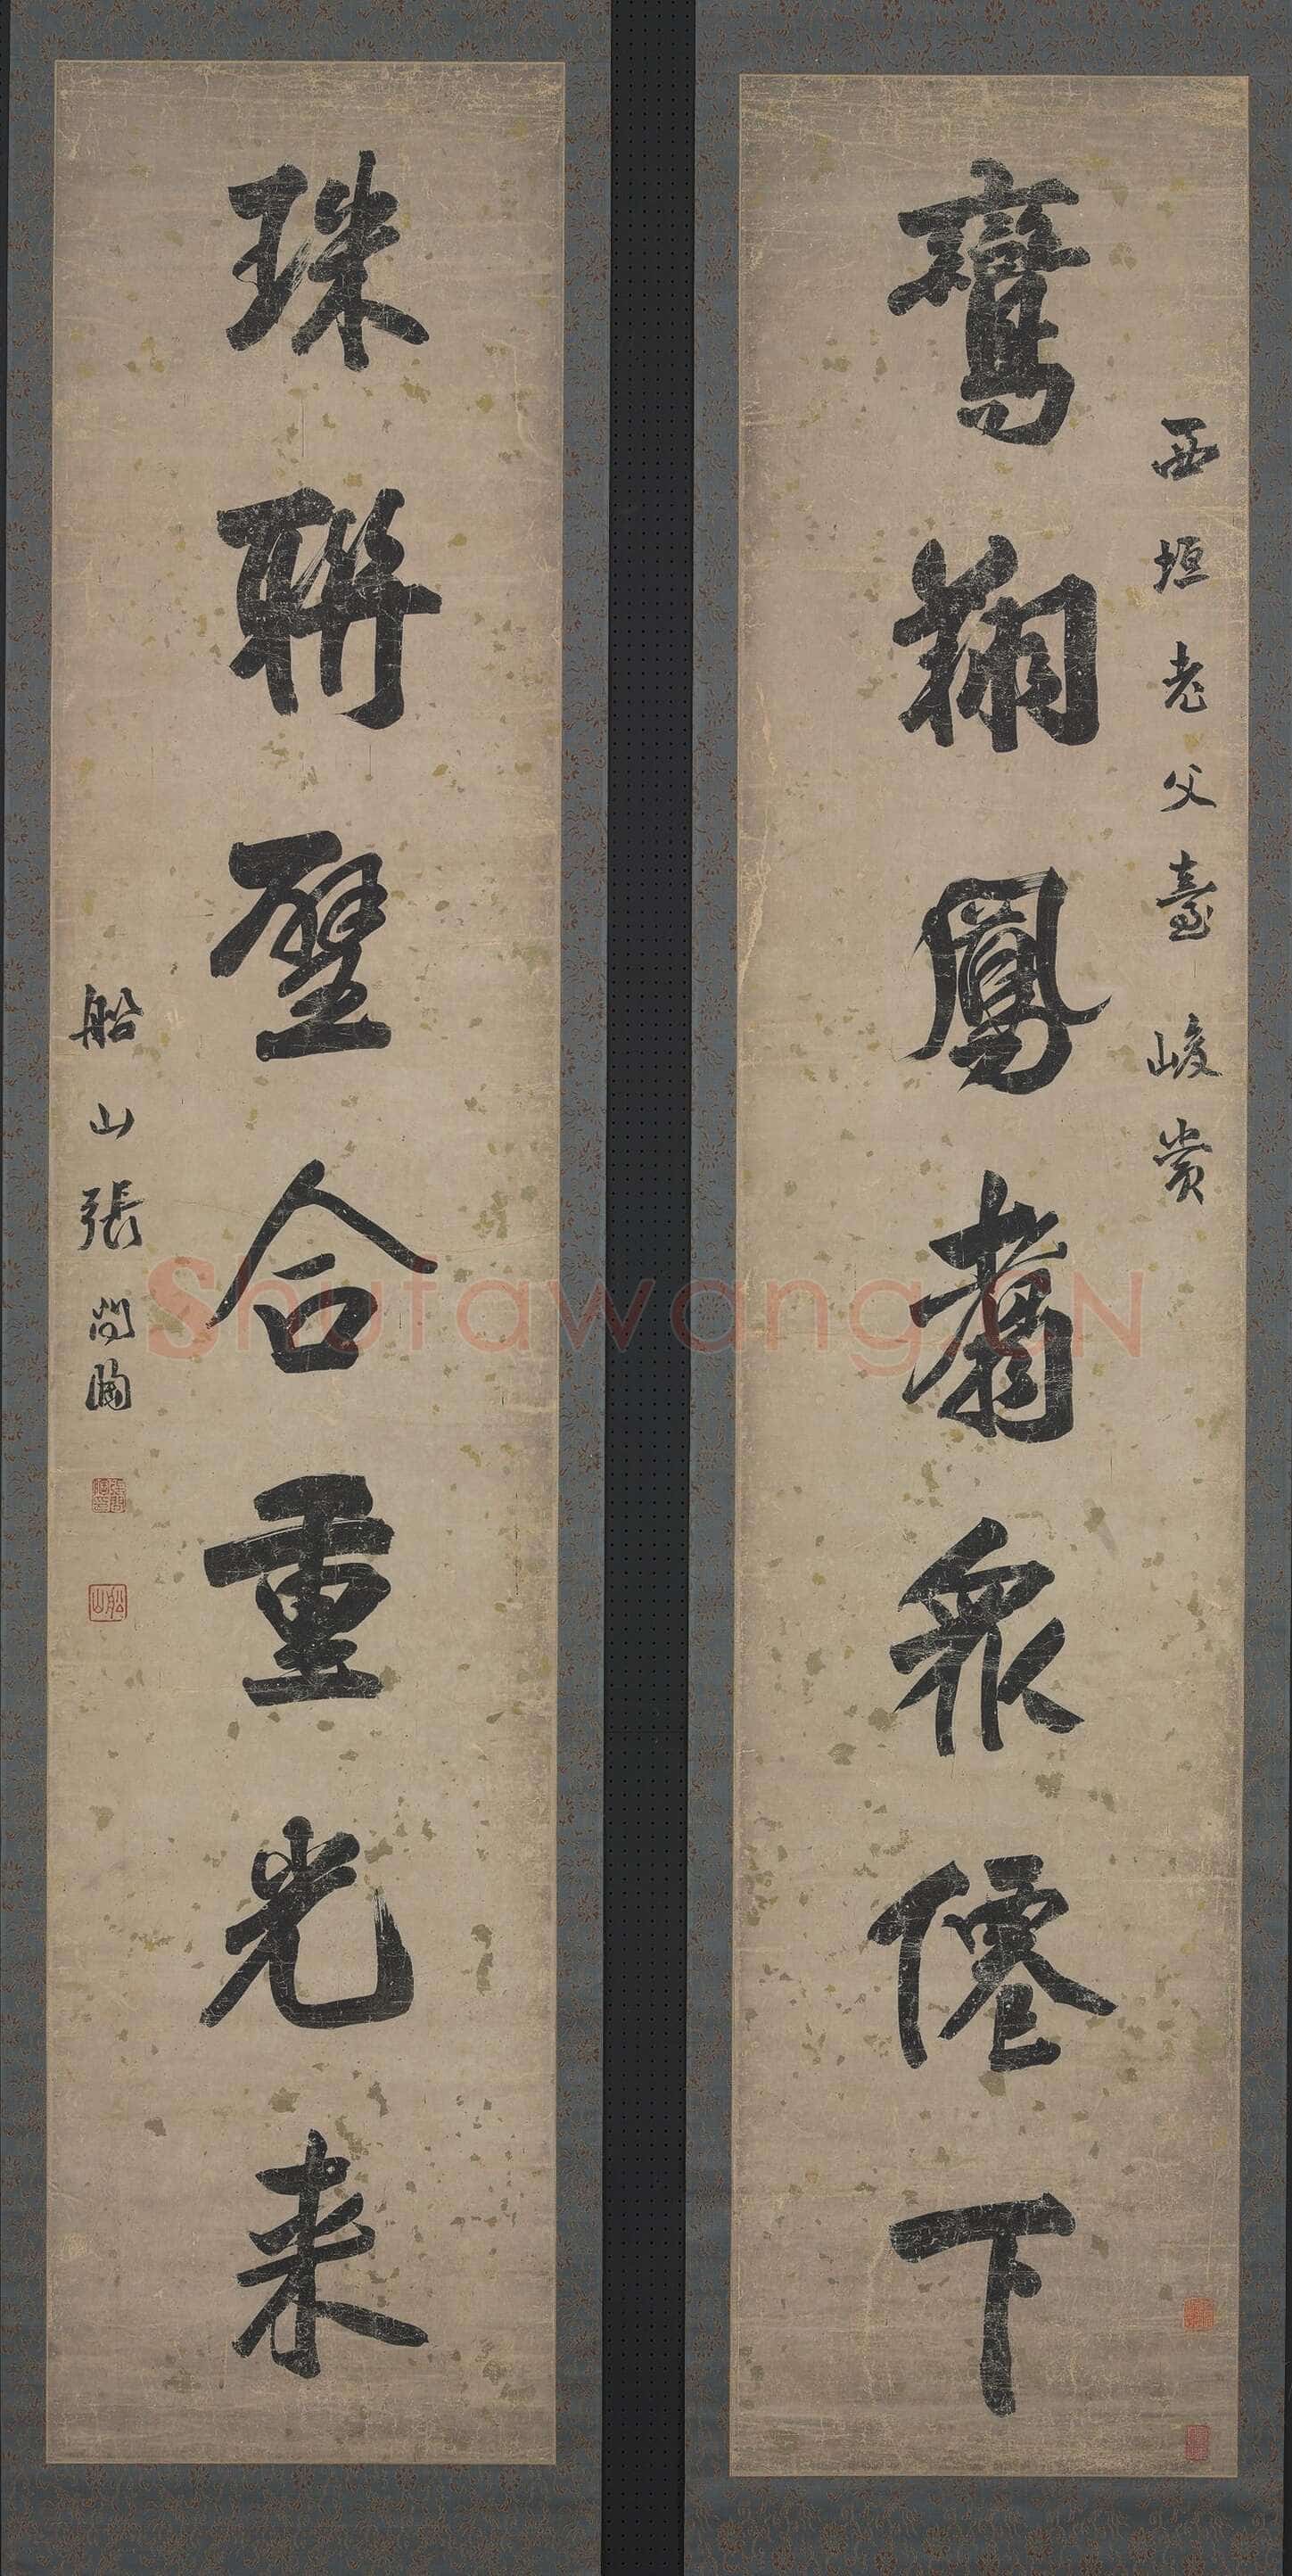 西垣老父臺峻賞
鸞翔鳳翥衆僊下
珠聯璧合重光来
船山張問陶
船山
Shufawang.CN